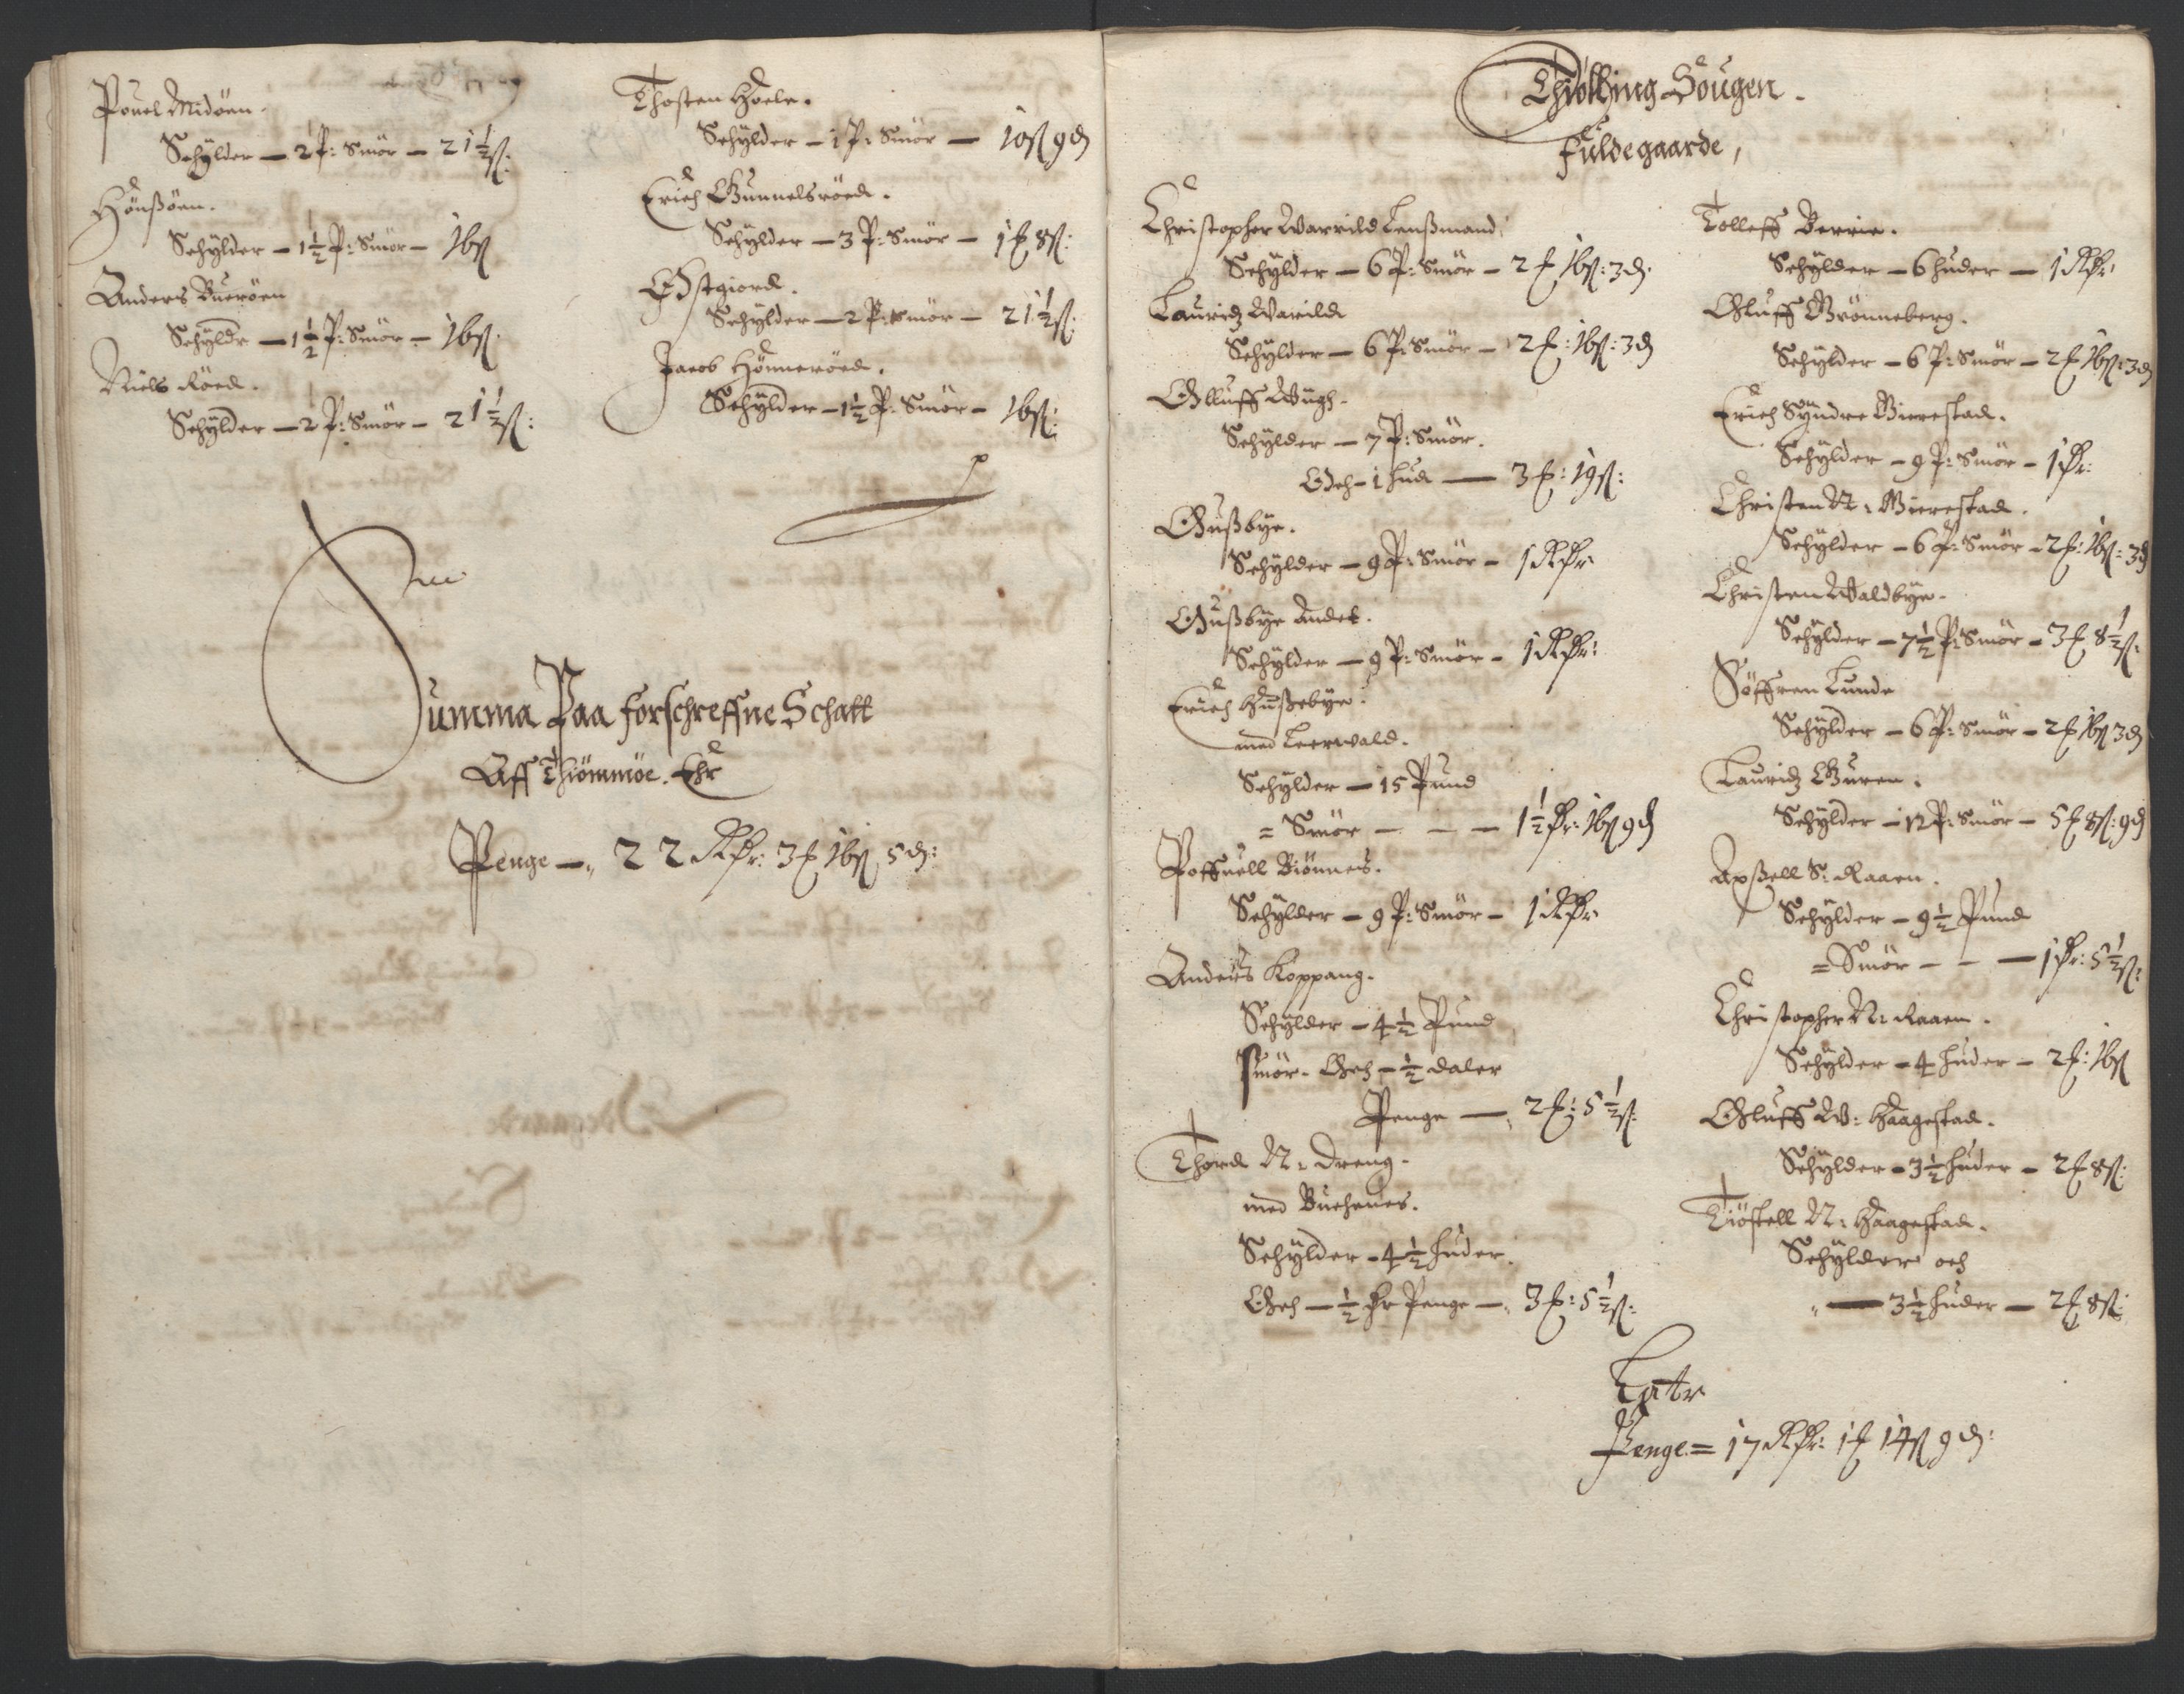 Pouel Midöen.
Schÿlder — 2 P: Smör — 21½ ß:
Hönßöen.
Schÿlder — 1½ P: Smör — 16 ß
Anders Bueröen
Schÿldr — 1½ P: Smör — 16 ß.
Niels Röed.
Schÿlder — 2 P: Smör — 21½ ß:
Thosten Hoele.
Schÿlder — 1 P: Smör — 10 ß 9 d
Erich Gunnelsröed.
Schÿlder — 3 P: Smör — 1 £ 8 ß:
Östgiord.
Schÿlder — 2 P: Smör — 21½ ß:
Jacob Hönneröed.
Schÿlder — 1½ P: Smör — 16 ß:
Summa Paa forschreffne Schatt
Aff Thiömmöe. Ehr
Penge —„ 22 Rdr: 3 £ 16 ß 5 d:
Thiölling Sougen.
fuldegaarde,
Christopher Warrild Lenßmand
Schÿlder — 6 P: Smör — 2 £ 16 ß: 3 d.
Lauridz Warild
Schÿlder — 6 P: Smör — 2 £: 16 ß: 3 d
Olluff Wiigh.
Schÿlder — 7 P: Smör.
Och — 1 hud — 3 £: 19 ß:
Gußbye.
Schÿlder — 9 P: Smör — 1 Rdr
Gußbye Andet.
Schÿlder — 9 P: Smör — 1 Rdr:
Erich Hußebye.
med Leerwald.
Schÿlder — 15 Pund
= Smör — — — 1½ dr: 16 ß 9 d
Poffuell Biönnes.
Schÿlder — 9 P: Smör — 1 Rdr
Anders Koppang.
Schÿlder — 4½ Pund
smör. Och — ½ daler
Penge — 2 £: 5½ ß:
Thord N: Dreng.
med Buchenes.
Schÿlder — 4½ huder.
Och — ½ dr Penge —„ 3 £: 5½ ß:
Tolleff Berrie.
Schÿlder — 6 huder — 1 Rdr:
Oluff Grönneberg.
Schÿlder — 6 P: Smör — 2 £ 16 ß: 3 d
Erich Syndre Bierestad.
Schÿlder — 9 P: Smör — 1 dr:
Christen N: Bierestad.
Schÿlder — 6 P: Smör — 2 £: 16 ß: 3 d
Christen Waldbye.
Schÿlder — 7½ P: Smör — 3 £ 8½ ß:
Söffren Lunde
Schÿlder — 6 P: Smör — 2 £ 16 ß 3 d
Lauridz Guren.
Schÿlder — 12 P: Smör — 5 £ 8 ß: 9 d
Axßell S: Raaen.
Schÿlder — 9½ Pund
= Smör — — — 1 dr: 5½ ß:
Christopher N: Raaen.
Schÿlder — 4 huder — 2 £: 16 ß
Oluff W: Haagestad.
Schÿlder — 3½ huder — 2 £ 8 ß:
Tiöstell N: Haagestad.
Schÿlder och
„ — 3½ huder — 2 £ 8 ß:
Latr
Penge = 17 Rdr: 1 £ 14 ß 9 d: